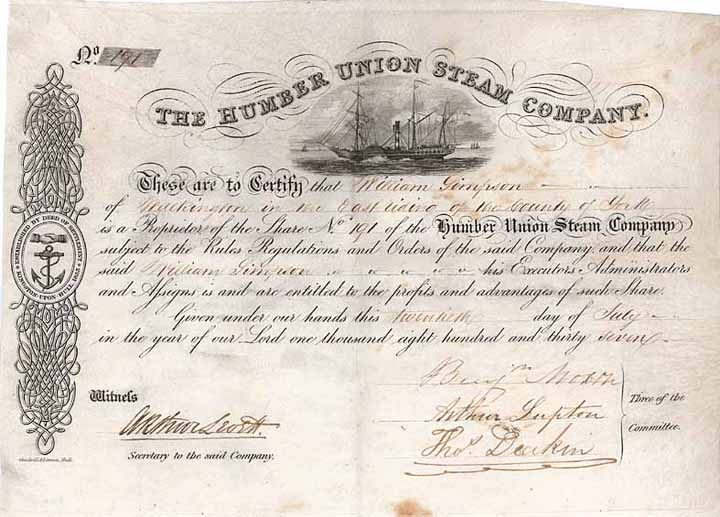 No. 191
THE HUMBER UNION STEAM COMPANY.
These are to Certify that William Simpson
of in the East riding of the County of York
is a Proprietor of the Share No. 191 of the Humber Union Steam Company
subject to the Rules Regulations and Orders of the said Company, and that the
said William Simpson his Executors Administrators
and Assigns is and are entitled to the profits and advantages of such Share.
Given under our hands this twentieth day of July
in the year of our Lord one thousand eight hundred and thirty seven
ESTABLISHED BY DEED OF SETTLEMENT
KINGSTON-UPON-HULL
Witness
Arthur
Secretary to the said Company.
Benjn. Moxon
Arthur Lupton
Thos. Deakin
Three of the
Committee.
Hull.